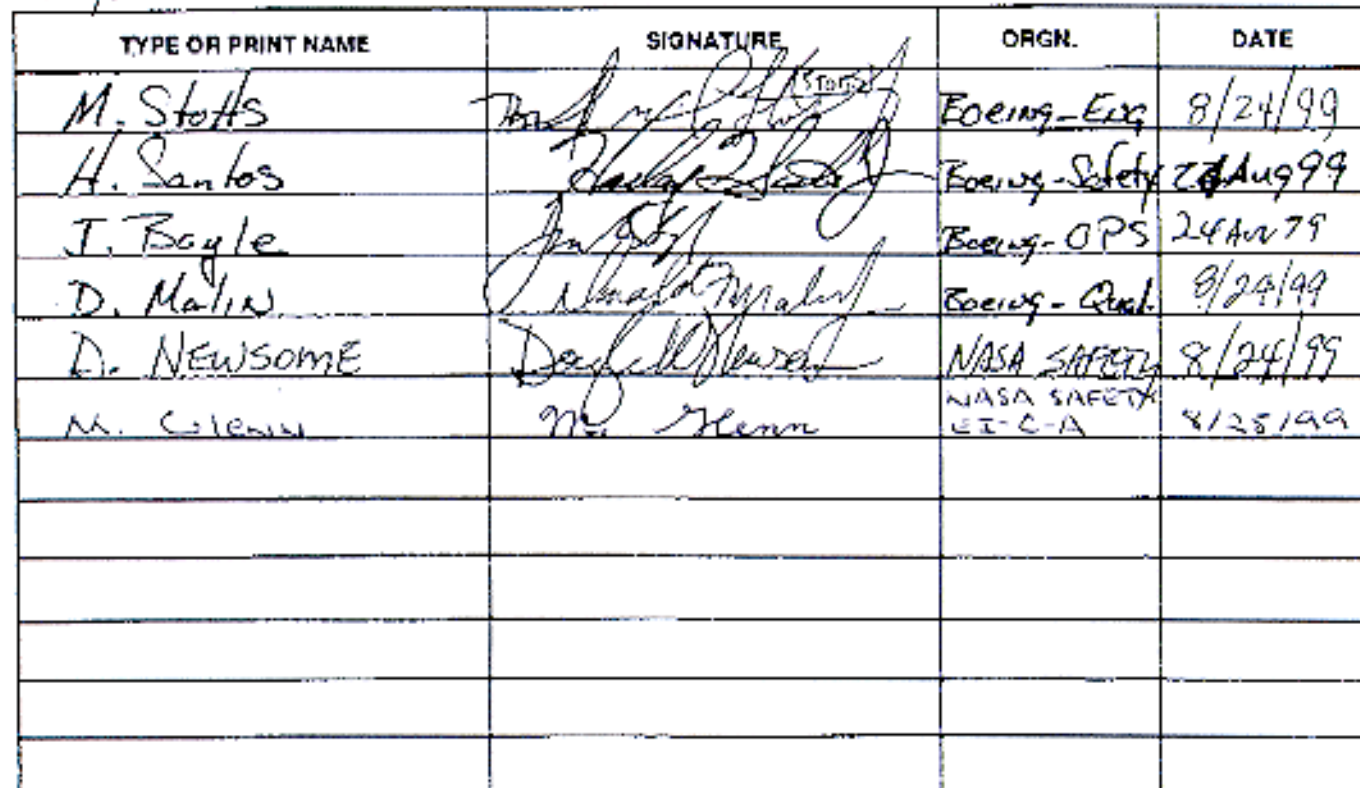 TYPE OR PRINT NAME SIGNATURE ORGN. DATE
M. Stotts (STOTTS) Boeing-Eng 8/24/99
H. Santos Boeing-Safety 24Aug99
J. Bayle Boeing-OPS 24
D. Malin Donald Malin Boeing-Qual. 8/24/99
D. NEWSOME NASA SAFETY 8/24/99
M. Glenn M. Glenn NASA SAFETY EI-C-A 8/25/99